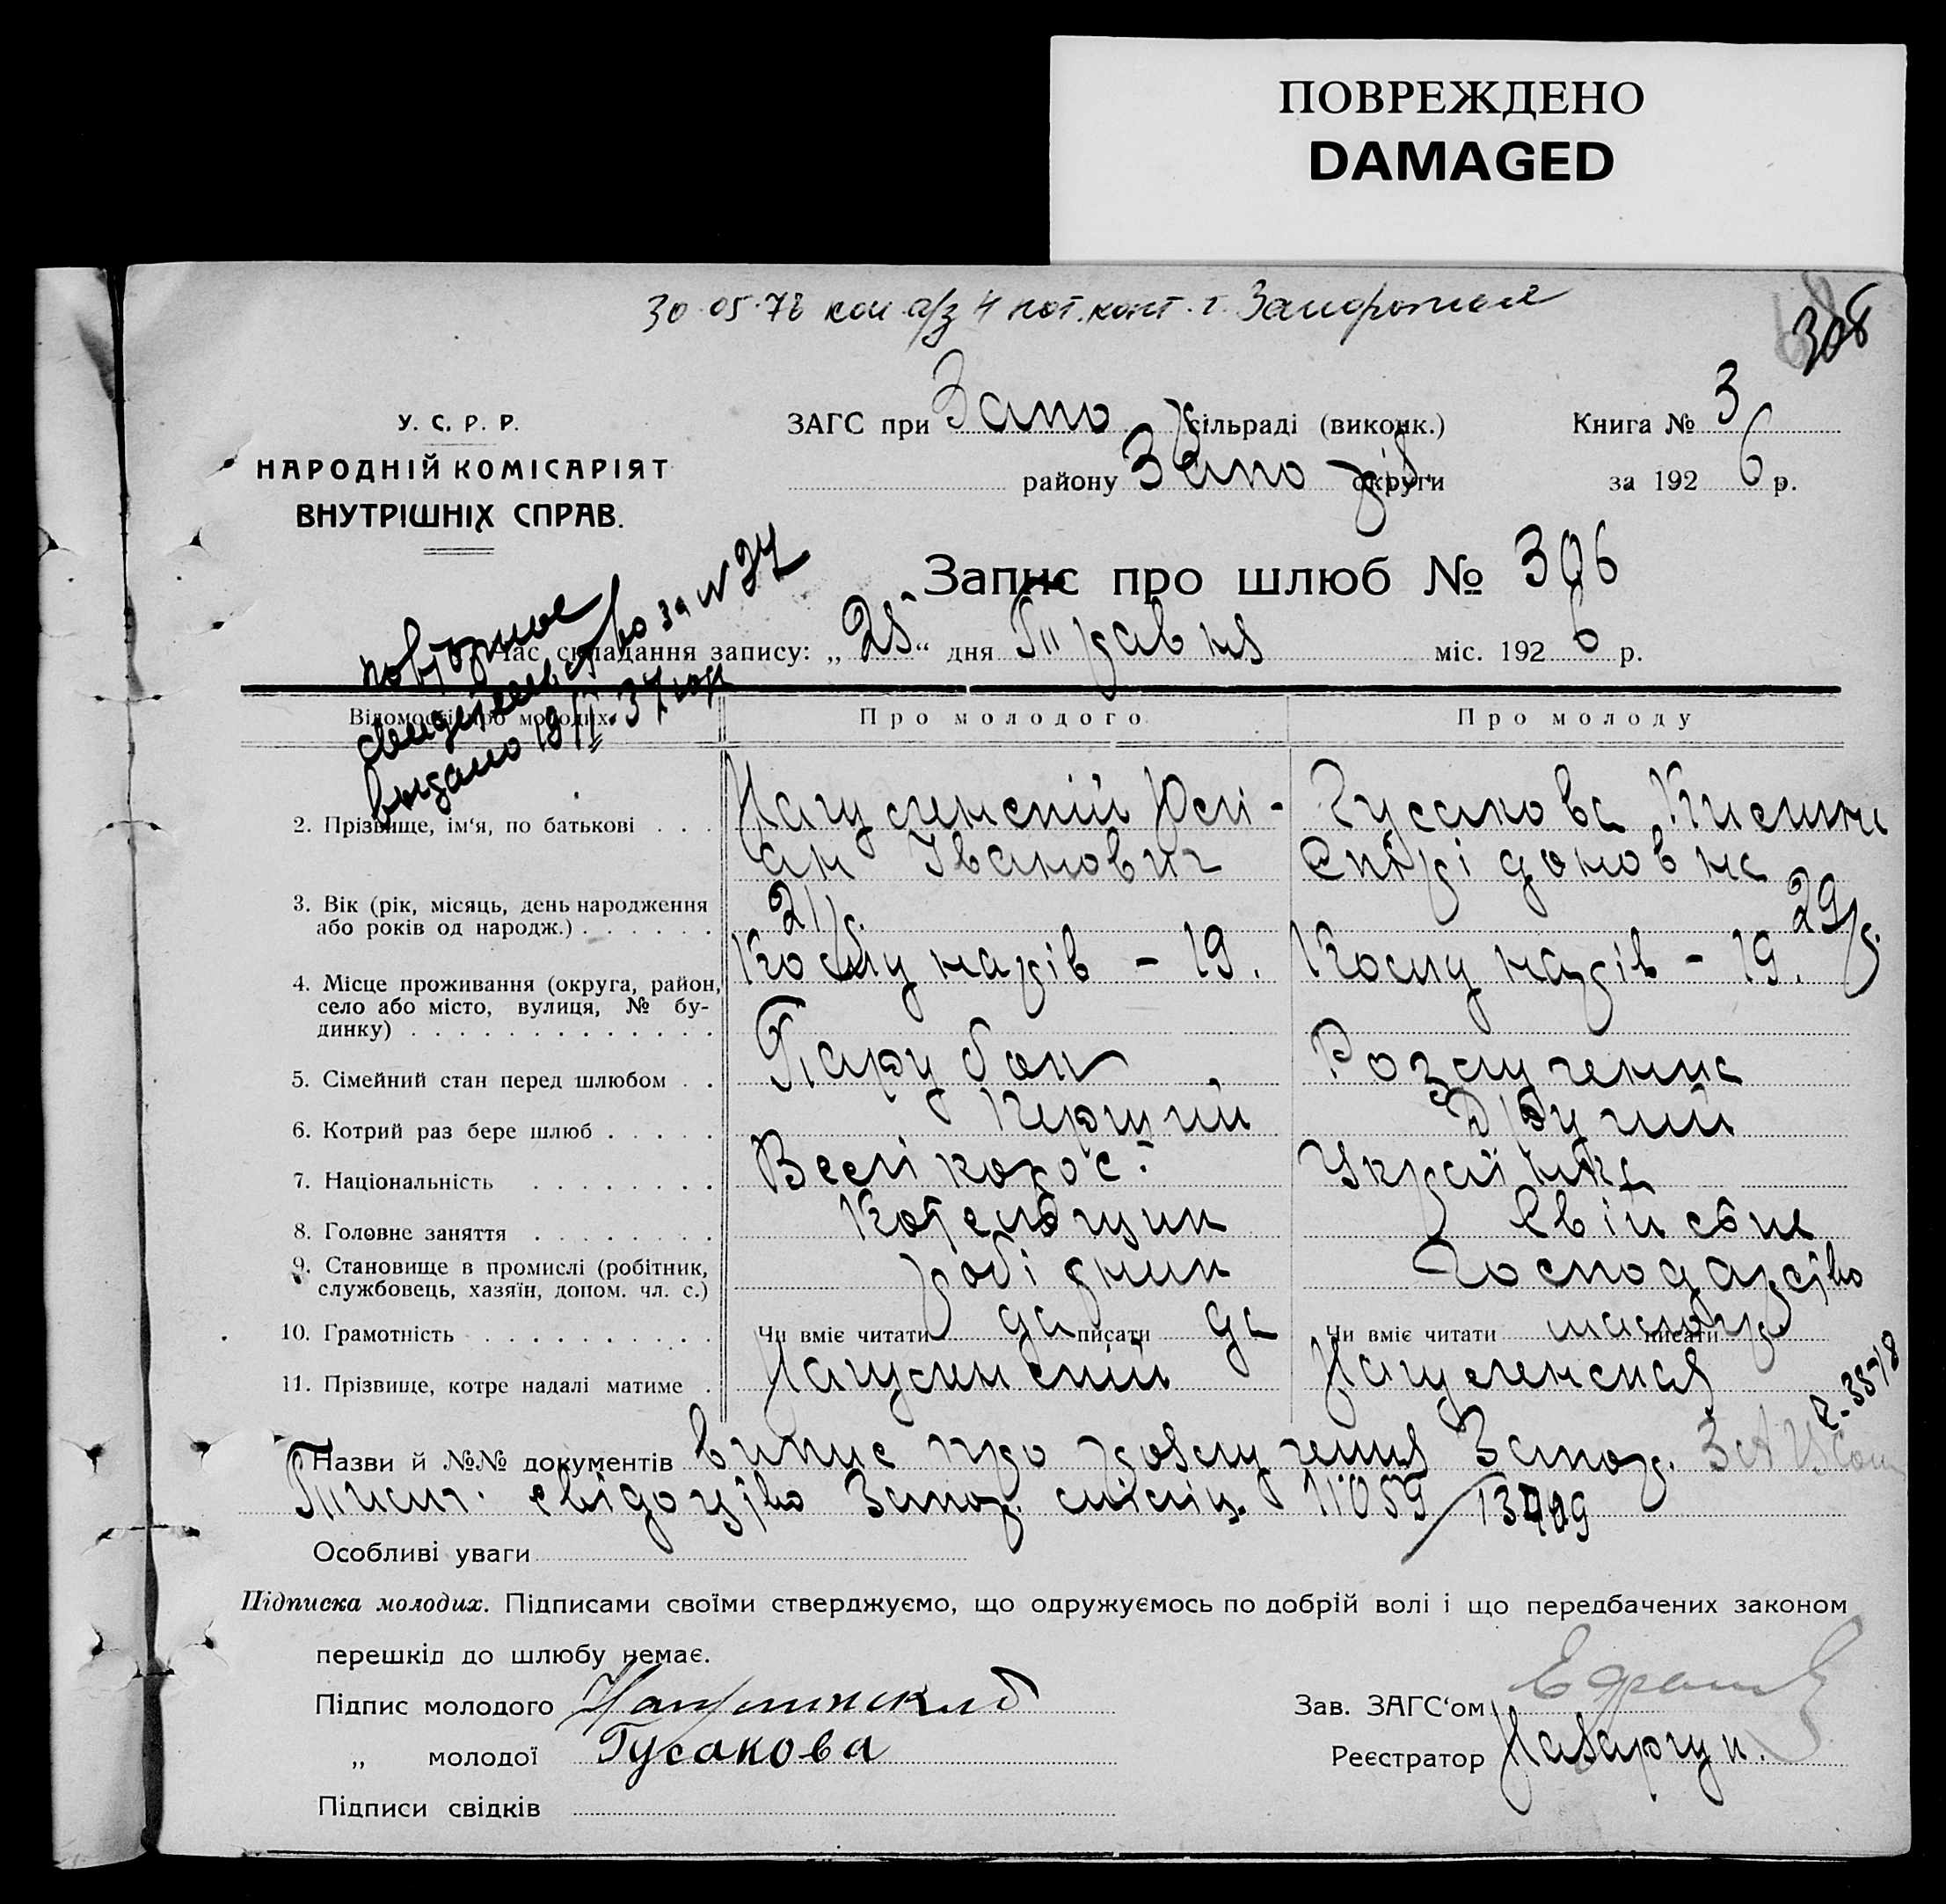 ПОВРЕЖДЕНО
DAMAGED
30.05.78 коп а/з 4 нот. конт. г. Запорожья
308
У. С. Р. Р.
НАРОДНІЙ КОМІСАРІЯТ
ВНУТРІШНІХ СПРАВ.
ЗАГС при Запо сільраді (виконк.)
району Запо округи
Книга № 3
за 1926 р.
Запис про шлюб № 306
повторное
свидетельство за N 27
выдано 19/II 37 года
Час складання запису: „25“ дня Травня міс. 1926 р.
Відомості про молодих. Про молодого. Про молоду
2. Прізвище, ім'я, по батькові . . . Юлі- Гусакова
ан Іванович Спірідоновна
3. Вік (рік, місяць, день народження
або років од народж.) . . . . . . 21 р. 29 р.
4. Місце проживання (округа, район,
село або місто, вулиця, № бу-
динку) . . . . . . . . . . . . . Комунарів – 19. Комунарів – 19.
5. Сімейний стан перед шлюбом . . Парубок Розлученна
6. Котрий раз бере шлюб . . . . . Перший Другий
7. Національність . . . . . . . . Велікорос. Українка
8. Головне заняття . . . . . . . . Котельщик Свійське
9. Становище в промислі (робітник,
службовець, хазяїн, допом. чл. с.) робідник господарство
10. Грамотність . . . . . . . . . . . Чи вміє читати да писати да Чи вміє читати писати
11. Прізвище, котре надалі матиме .
Назви й №№ документів випис про розлучення Запор.
Тисч. свідоцтво Запор. міліц. 11059/13709
Особливі уваги
Підписка молодих. Підписами своїми стверджуємо, що одружуємось по добрій волі і що передбачених законом
перешкід до шлюбу немає.
Підпис молодого
„ молодої Гусакова
Підписи свідків
Зав. ЗАГС'ом
Реєстратор